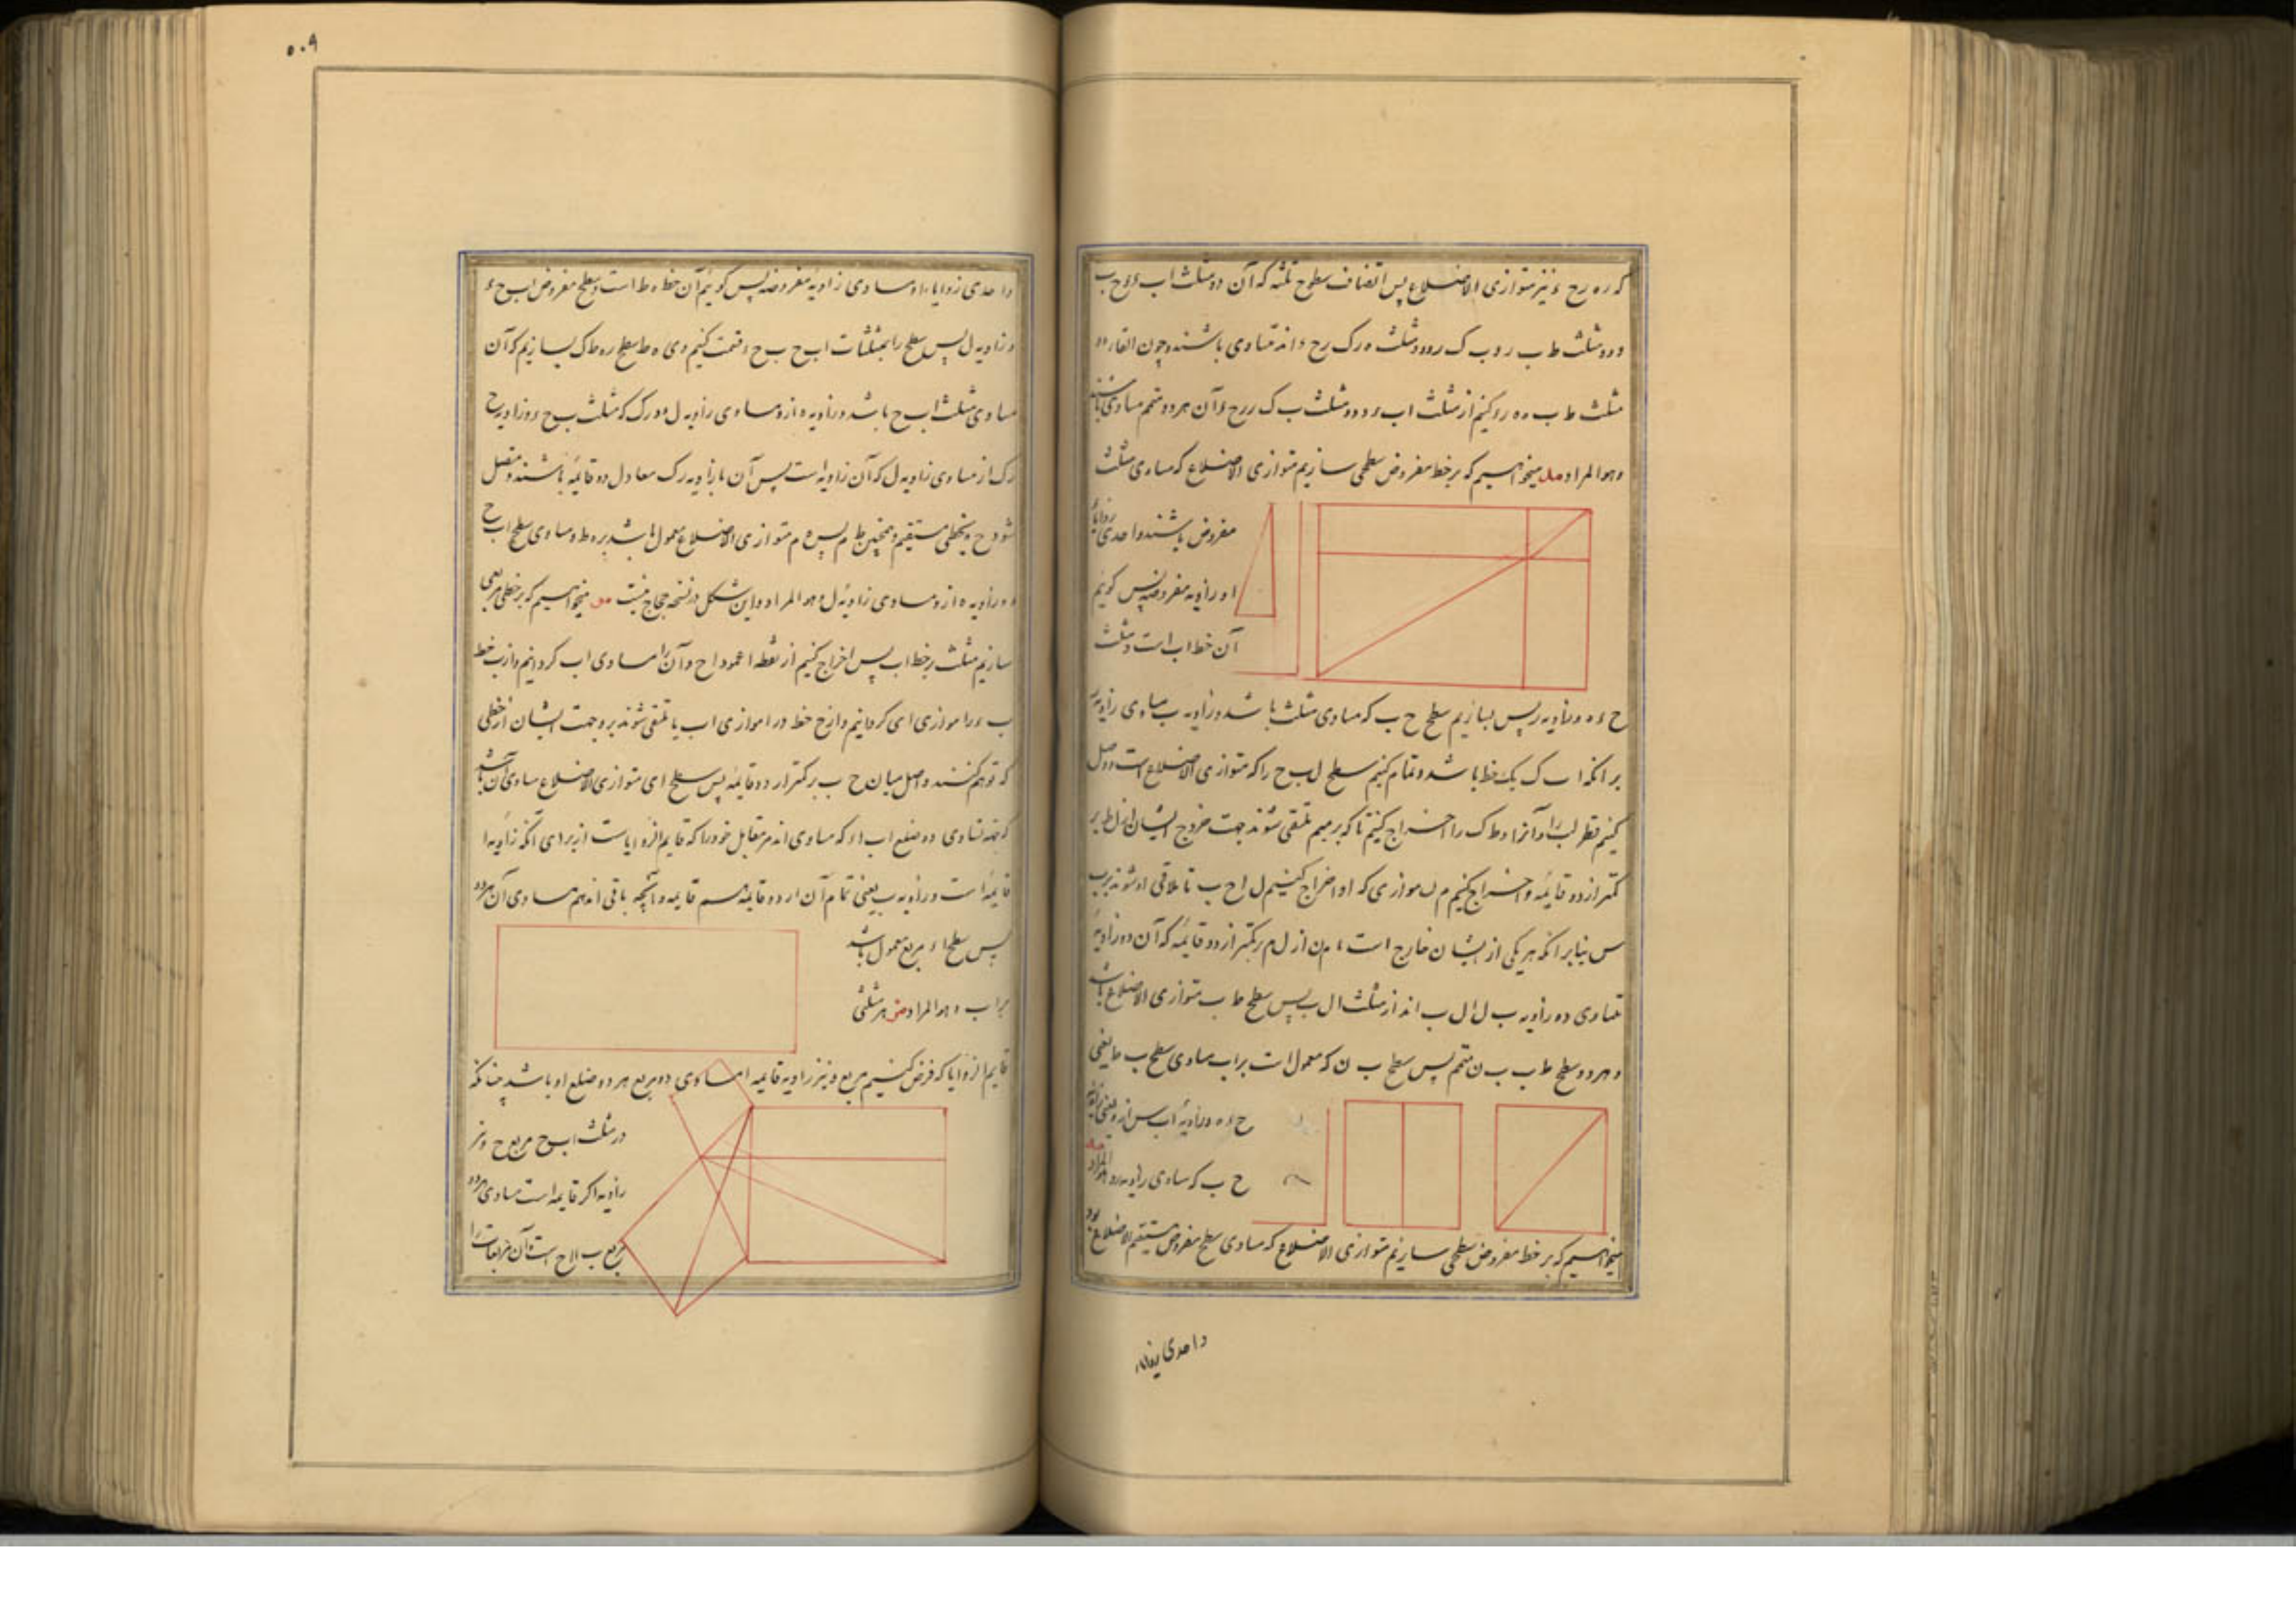 که ره رح ء نیز متوازی الاضلاع پس انصاف سطوح ثلثه که آن دو مثلث اب ء ء ح ب
و دو مثلث ط ب ر و ب ک ر و دو مثلث ه ر ک رح ء اند متساوی باشند و چون القاء دو
مثلث ط ب ر ه ر کنیم از مثلث اب ء و دو مثلث ب ک ر رح ء آن هر دو متمم مساوی باشند
وهو المراد مد میخواهیم که بر خط مفروض سطحی سازیم متوازی الاضلاع که مساوی مثلث
مفروض باشند و احدی زوایاء
او زاویه مفروضه پس گوئیم
آن خط اب است و مثلث
ح ء ه و زاویه ر پس بسازیم سطح ح ب که مساوی مثلث باشد و زاویه ب مساوی زاویه ر
بر آنکه اب ک یک خط باشد و تمام کنیم سطح ل ب ح را که متوازی الاضلاع است و وصل
کنیم قطر ل ب را و آنرا و ط ک را اخراج کنیم تا که بر میم ملتقی شوند جهت خروج ایشان از ل ط بر
کمتر از دو قائمه و اخراج کنیم م ن موازی ک او اخراج کنیم ل ا ح ب تا ملاقی او شوند بر ن
س بنابر آنکه هر یکی از ایشان خارج است با م ن از ل م بر کمتر از دو قائمه که آن دو زاویه
متساوی دو زاویه ب ل ا ل ب اند از مثلث ال ب پس سطح ط ب متوازی الاضلاع باشد
و هر دو سطح ط ب ب ن متمم پس سطح ب ن که معمول است بر اب مساوی سطح ب ط یعنی
ح ء ه و زاویه اب س از و یعنی زاویه
ح ب که مساوی زاویه ر وهو المراد مه
میخواهیم که بر خط مفروض سطحی سازیم متوازی الاضلاع که مساوی سطح مفروض مستقیم الاضلاع بود
و احدی زوایاء
٥٠٩
و احدی زوایاء او مساوی زاویه مفروضه پس گوئیم آن خط ه ط است و سطح مفروض اب ح ء
و زاویه ل پس سطح را بمثلثات اب ح ب ح ء قسمت کنیم و بر ه ط سطح ره ط ک بسازیم که آن
مساوی مثلث اب ح باشد و زاویه ه از و مساوی زاویه ل و بر رک که مثلث ب ح ء و زاویه ح
رک از مساوی زاویه ل که آن زاویه ه است پس آن با زاویه ه رک معادل دو قائمه باشند و متصل
شود ح ه بخطی مستقیم و همچنین ط م پس ه م متوازی الاضلاع معمول باشد بر ه ط و مساوی سطح اب ح
ء و زاویه ه از و مساوی زاویه ل وهو المراد و این شکل در نسخه حجاج نیست مو میخواهیم که بر خطی مربعی
سازیم مثلث بر خط اب پس اخراج کنیم از نقطه ا عمود اح و آن را مساوی اب گردانیم و از ب خط
ب ء را موازی ای گردانیم و از ح خط ء ر ا موازی اب یا ملتقی شوند بر ء جهت ایشان از خطی
که توهم کنند و اصل میان ح ب بر کمتر از دو قائمه پس سطح ای متوازی الاضلاع مساوی آن باشد
که جهة تساوی دو ضلع اب ا ء که مساوی اند مر مقابل خود را که قایم الزوایاست از برای آنکه زاویه ا
قایمه است و زاویه ب یعنی تمام آن از دو قایمه هم قایمه و آنچه باقی اند هم مساوی آن هر دو
پس سطح ا ء مربع معمول باشد
بر اب ء وهو المراد مز هر مثلثی
قایم الزوایا که فرض کنیم مربع وتر زاویه قایمه او مساوی دو مربع هر دو ضلع او باشد چنانکه
در مثلث اب ح مربع ح وتر
زاویه ا که قایمه است مساوی هر دو
مربع ب ا ا ح است و آن مربعات را